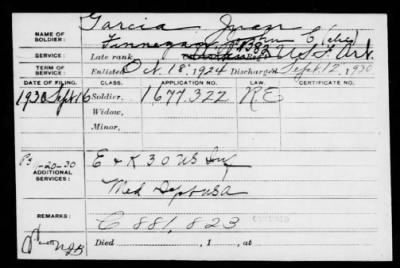 Garcia, Juan
NAME OF SOLDIER:
Finnegan, John C (alias)
SERVICE: Late rank, U.S. Art.
TERM OF SERVICE: Enlisted Oct. 18, 1924 Discharged Sept 12, 1930
DATE OF FILING. CLASS. APPLICATION NO. LAW. CERTIFICATE NO.
1930 Sept 16 Soldier, 1677.322 RE
Widow,
Minor,
11-20-30 E & K 30 US Inf
ADDITIONAL SERVICES:
Med Dept USA
REMARKS: C 881,823
Died , 1 , at